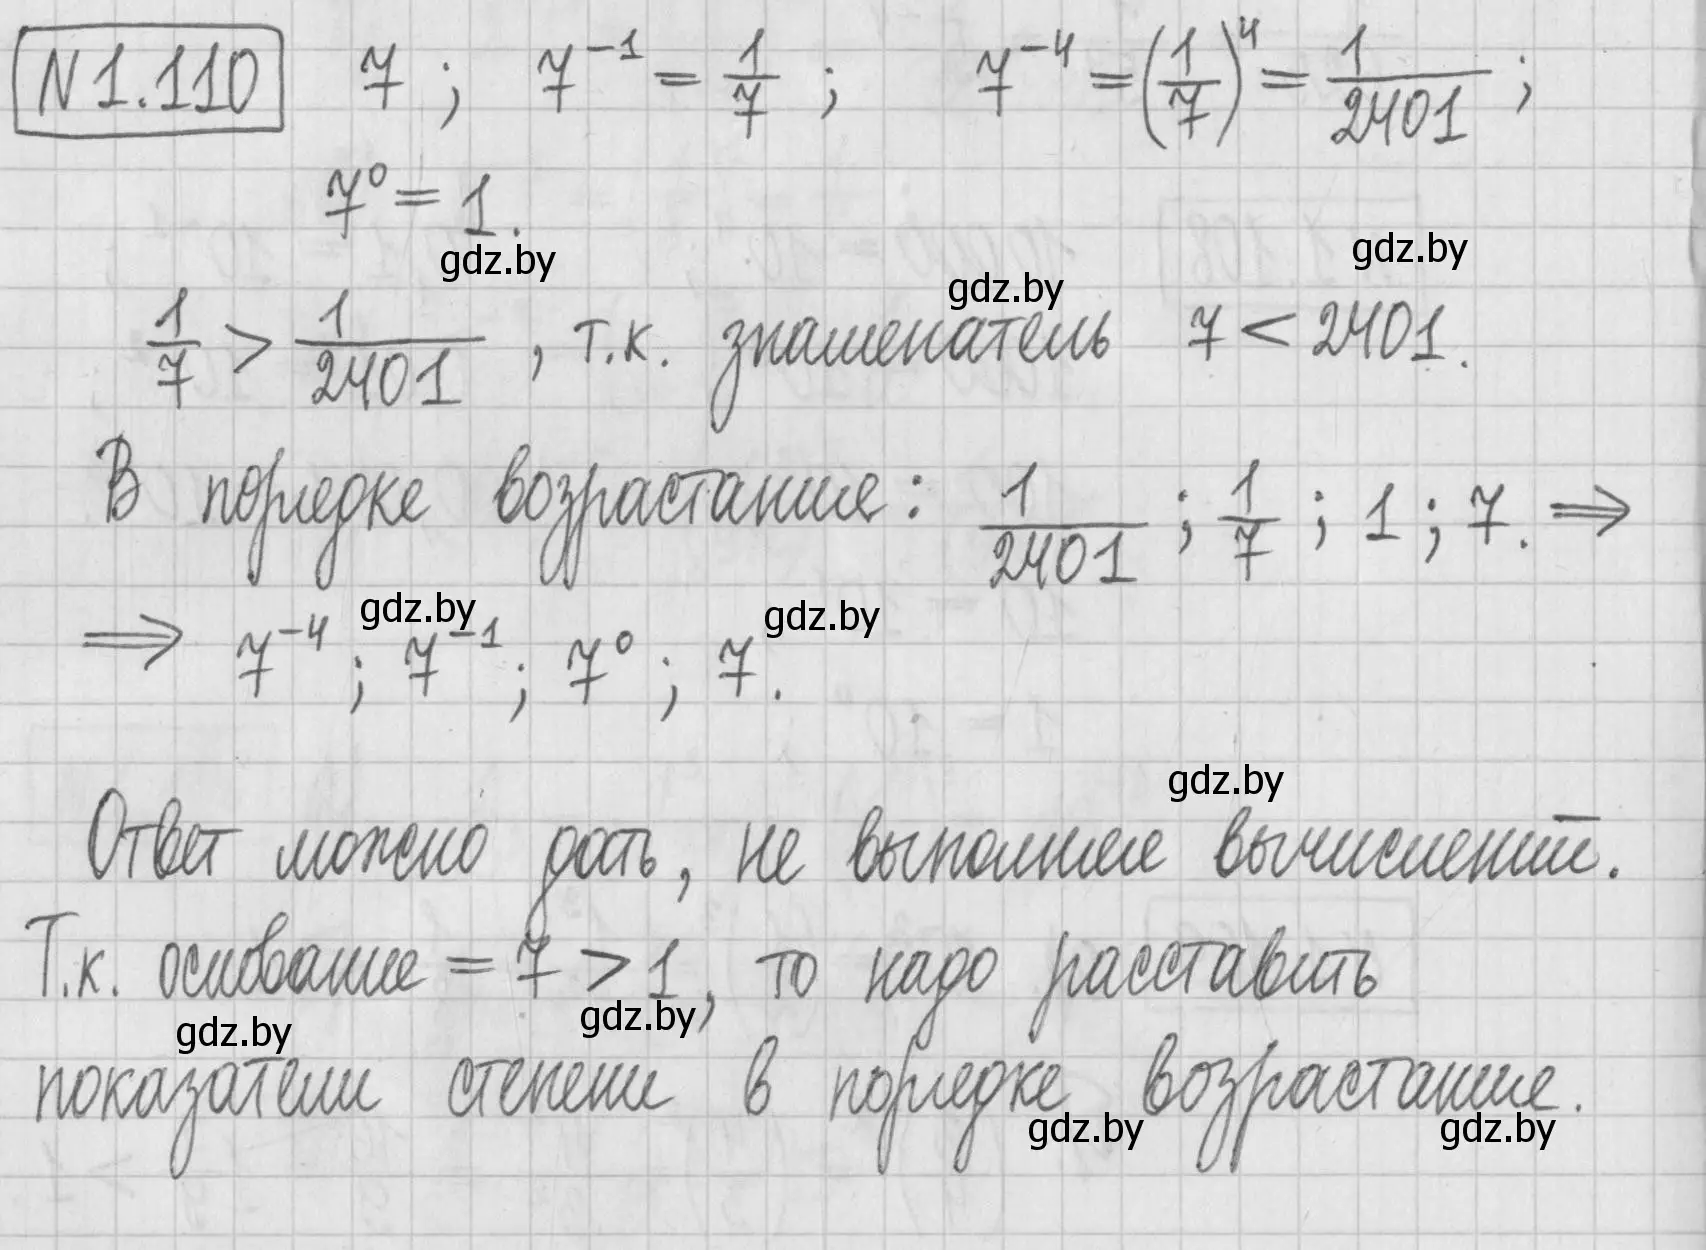 N 1.110   7 ;   7⁻¹ = 1/7 ;   7⁻⁴ = (1/7)⁴ = 1/2401 ;
7⁰ = 1.
gdz.by   gdz.by   gdz.by
1/7 > 1/2401 , т.к. знаменатель 7 < 2401.
В порядке возрастания: 1/2401 ; 1/7 ; 1 ; 7. ⇒
gdz.by   gdz.by
⇒ 7⁻⁴ ; 7⁻¹ ; 7⁰ ; 7.
gdz.by
Ответ можно дать, не выполняя вычислений.
Т.к. основание = 7 > 1, то надо расставить
gdz.by   gdz.by
показатели степени в порядке возрастания.
gdz.by   gdz.by